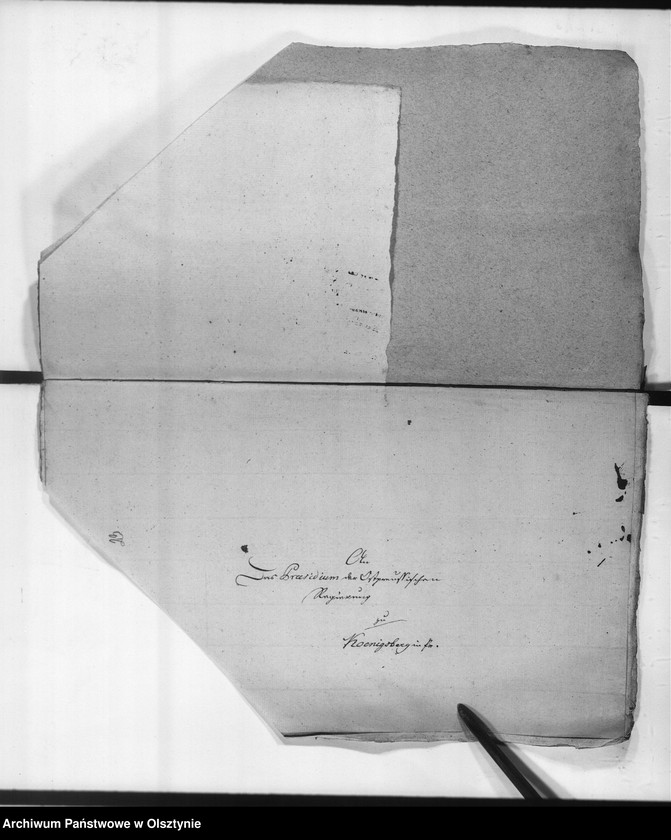 An
Das Præsidium der Ostpreussischen
Regierung
zu
Koenigsberg in Pr.
Archiwum Państwowe w Olsztynie